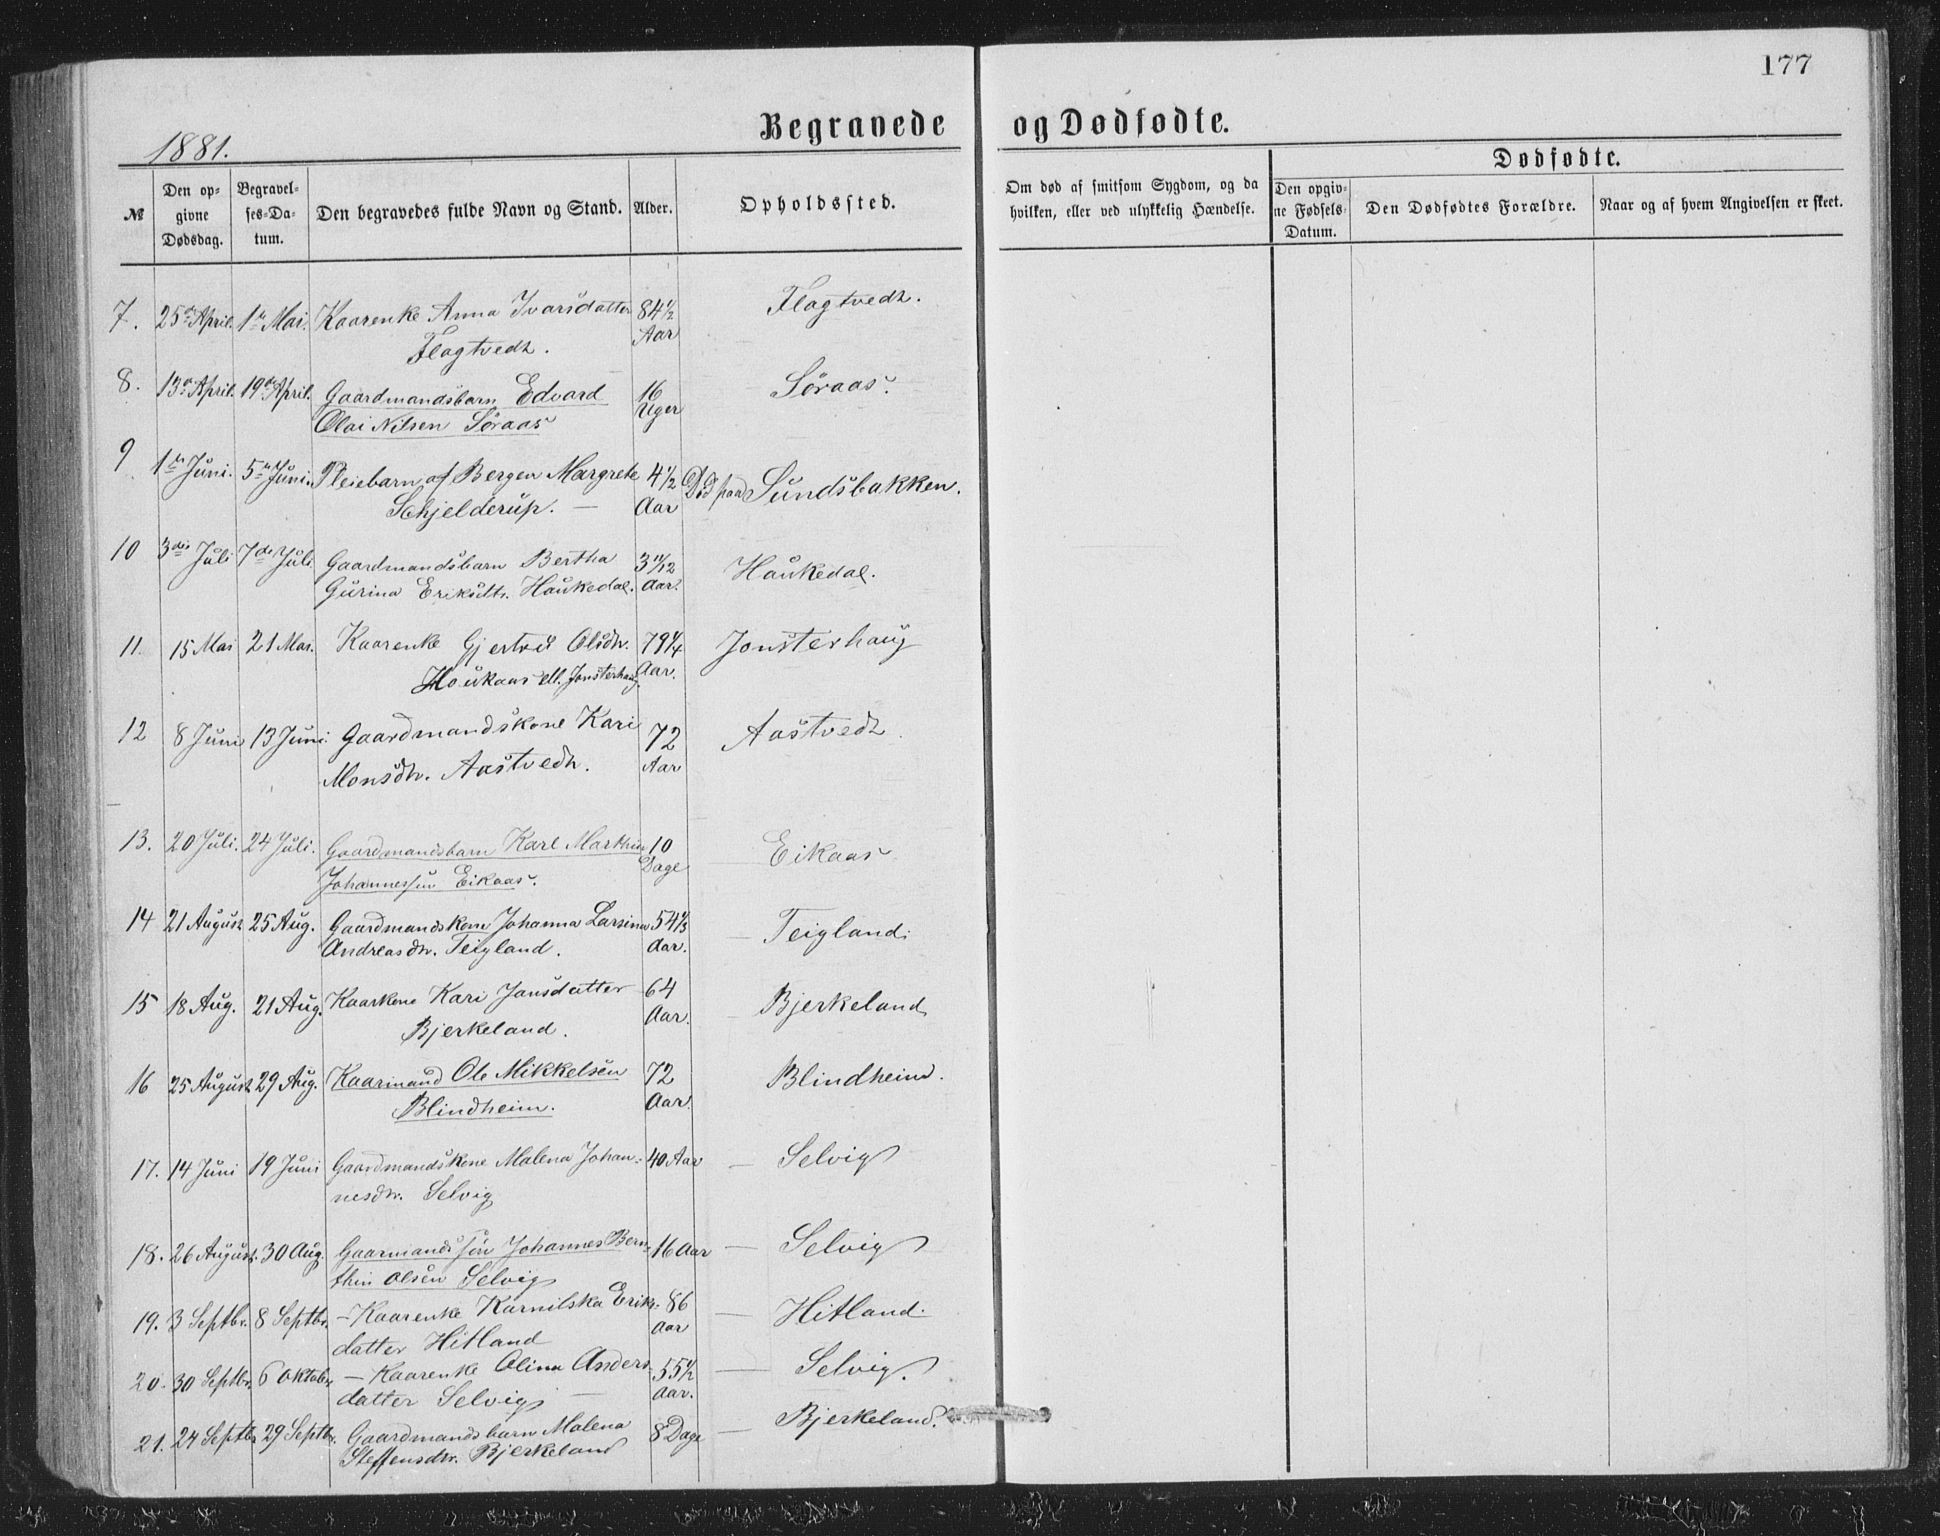 177
Begravede og Dødfødte.
1881.
Dødfødte.
№ Den opgivne Dødsdag. Begravelses-Datum. Den begravedes fulde Navn og Stand. Alder. Opholdssted. Om død af smitsom Sygdom, og da hvilken, eller ved ulykkelig Hændelse. Den opgivne Fødsels-Datum. Den Dødfødtes Forældre. Naar og af hvem Angivelsen er skeet.
7. 25de April. 1ste Mai. Kaarenke Anna Ivarsdatter 84 1/2 Flagtvedt.
Flagtvedt. Aar
8. 13de April. 19de April. Gaardmandsbarn Edvard 16 Søraas.
Olai Nilsen Søraas Uger
9 1ste Juni. 5te Juni. Pleiebarn af Bergen Margrete 4 1/2 Død paa Sundsbakken.
Schjelderup. — Aar
10 3die Juli 7de Juli. Gaardmandsbarn Bertha 3 11/12 Haukedal.
Gurina Eriksdtr. Haukedal. Aar.
11. 15 Mai 21 Mai. Kaarenke Gjertrud Olsdtr. 79 1/4 Jonsterhaug
Houkaas ell. Jonsterhaug. Aar.
12 8 Juni 13 Juni. Gaardmandskone Kari 72 Aastvedt.
Monsdtr. Aastvedt. Aar
13. 20 Juli. 24 Juli. Gaardmandsbarn Karl Marthin 10 Eikaas
Johannessen Eikaas. Dage
14 21 August 25 Aug. Gaardmandskone Johanna Larsina 54 1/3 — Teigland.
Andreasdtr. Teigland. Aar.
15 18 Aug. 21 Aug. Kaarkone Kari Jansdatter 64 — Bjerkeland
Bjerkeland. Aar.
16 25 August 29 Aug. Kaarmand Ole Mikkelsen 72 Blindheim.
Blindheim. Aar.
17. 14 Juni 19 Juni Gaardmandskone Malena Johan- 40 Aar — Selvig
nesdtr. Selvig
18. 26 August. 30 Aug. Gaarmandssøn Johannes Bern- 16 Aar — Selvig
thin Olsen Selvig
19. 3 Septbr. 8 Septbr. — Kaarenke Karnilska Eriks- 86 — Hitland.
datter Hitland Aar
20. 30 Septbr. 6 Oktober — Kaarenke Olina Anders- 55 1/2 — Selvig.
datter Selvig — Aar.
21. 24 Septbr 29 Septbr. Gaardmandsbarn Malena 8 Dage — Bjerkeland.
Steffensdtr. Bjerkeland